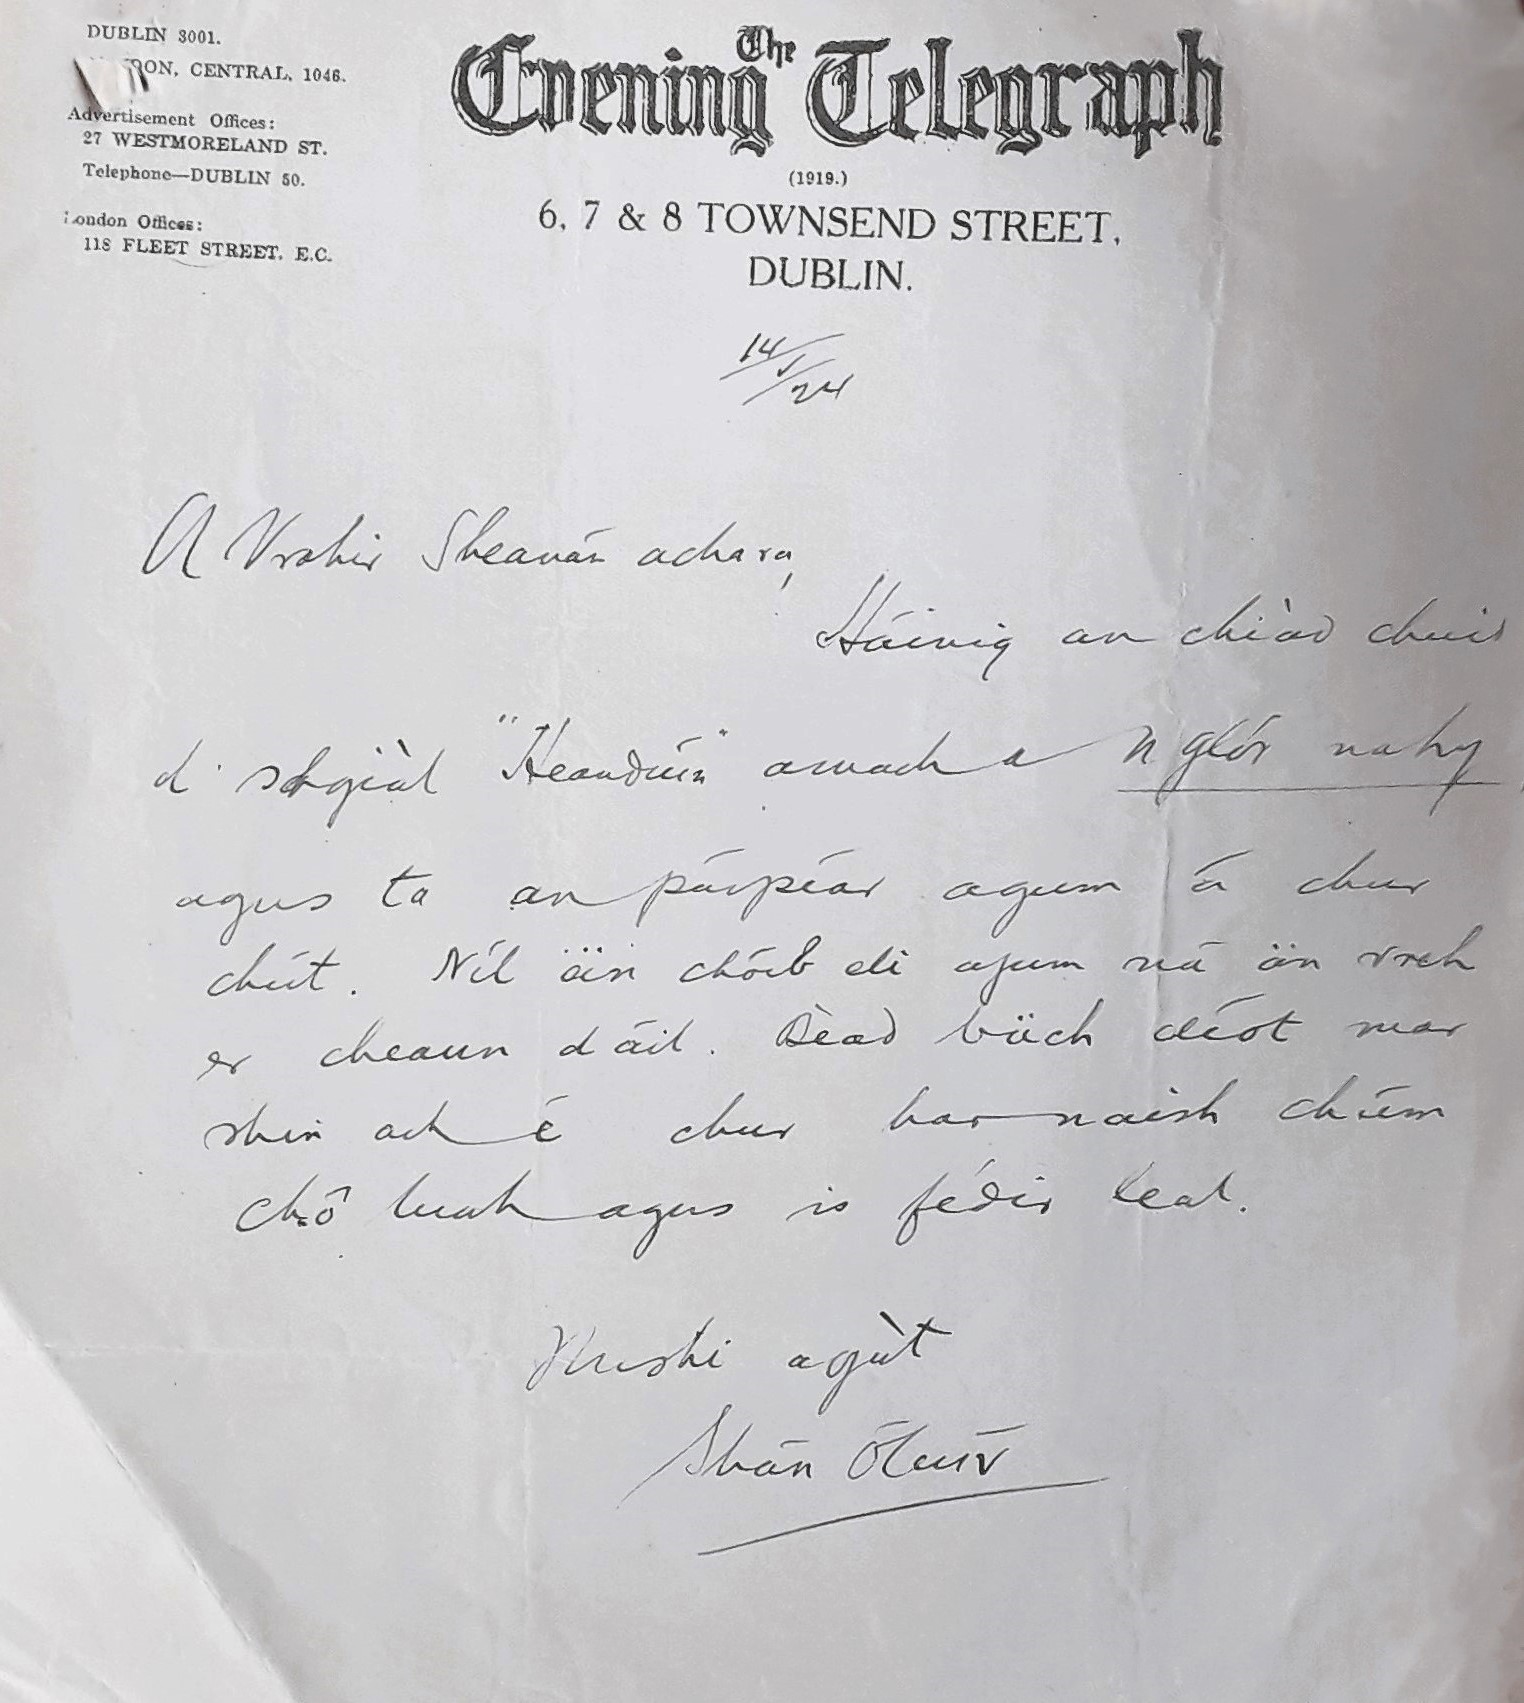 DUBLIN 3001.
CENTRAL, 1046.
Advertisement Offices:
27 WESTMORELAND ST.
Telephone—DUBLIN 50.
London Offices:
118 FLEET STREET, E.C.
The
Evening Telegraph
(1919.)
6, 7 & 8 TOWNSEND STREET,
DUBLIN.
14/1/24
A Vrahir Sheaván achara,
Háinig an chiàd chuid
d' shgiàl "Heandúin" amach a Nglór nahy
agus ta an párpéar agum á chur
chút. Níl äin chóib eli agum ná än vreh
er cheaun d'áil. Bèad büch díot mar
shin ach é chur har naish chúm
chô luah agus is fédir leat.
Mishi agùt
Shán Óhúv